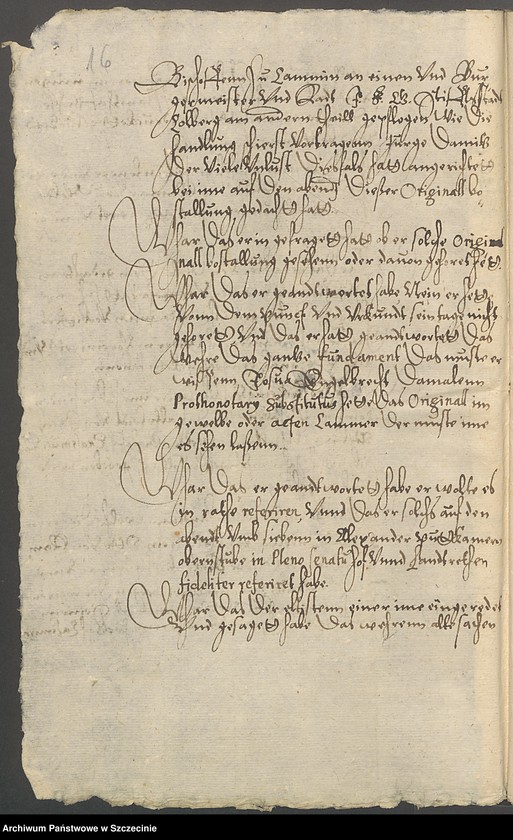 16
Bischoffenn zu Cammin an einen Vnd Bur
germeister Vnd Rads F. F. G. Stifft Stadt
Colberg am andern theill gepflogen, Wie die
handlung hierst Vortragenn Jurge Damitz
der Viele Vnlust diesfals hatt angerichtet
bei ime auf den abendt dieser Original be-
stallung, gedacht hatt
War das er in gefraget hatt ob er solche Origi
nall bestallung gesehenn oder dauon gehoret hette.
War das er geandtwortet habe Nein er hette
Vonn dem punct Vnd Vrkundt sein tage nicht
gehoret Vnd das er hatt geandtwortet das
Wehre das gantze fundament das muste er
wissenn Josua Engelbrecht damalenn
Prothonotary Substitutus hette das Original im
gewelbe oder acten Cammer der muste ime
es sehen lassenn.
War das er geandtwortet habe er wolte es
in rathe referiren, Vnnd das er solchs auf den
abendt Vmb siebenn in Alexander
oberstube in Pleno senatu hof Vnnd Landrethen
fideliter referiret habe.
War das der eltistenn einer ime eingeredet
Vnd gesaget habe das wehrenn alte sachen
Archiwum Państwowe w Szczecinie